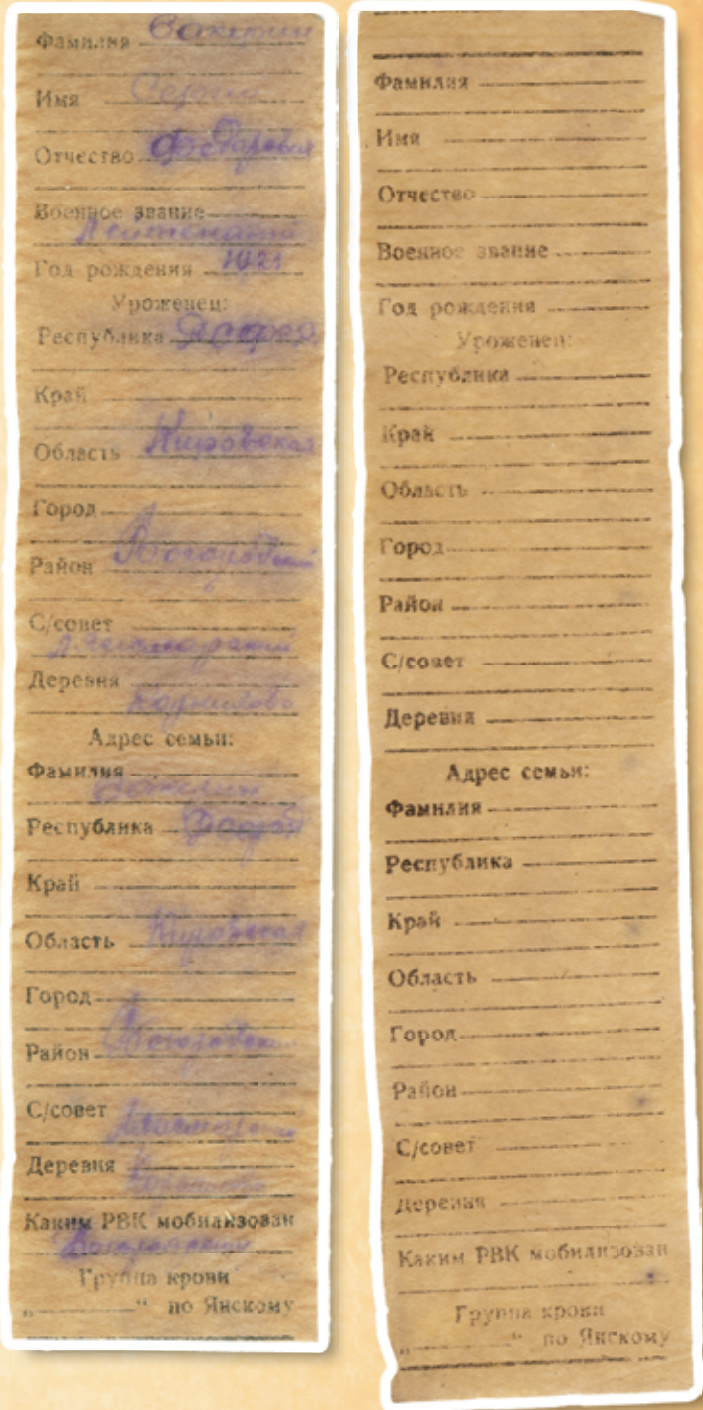 Фамилия
Имя Сергий
Отчество Федарович
Военное звание
Лейтенант
Год рождения 1921
Уроженец:
Республика РСФСР
Край
Область Кировская
Город
Район Богородский
С/совет
Деревня
Адрес семьи:
Фамилия
Республика РСФСР
Край
Область Кировская
Город
Район Богородский
С/совет
Деревня
Каким РВК мобилизован
Группа крови
„ “ по Янскому
Фамилия
Имя
Отчество
Военное звание
Год рождения
Уроженец:
Республика
Край
Область
Город
Район
С/совет
Деревня
Адрес семьи:
Фамилия
Республика
Край
Область
Город
Район
С/совет
Деревня
Каким РВК мобилизован
Группа крови
„ “ по Янскому